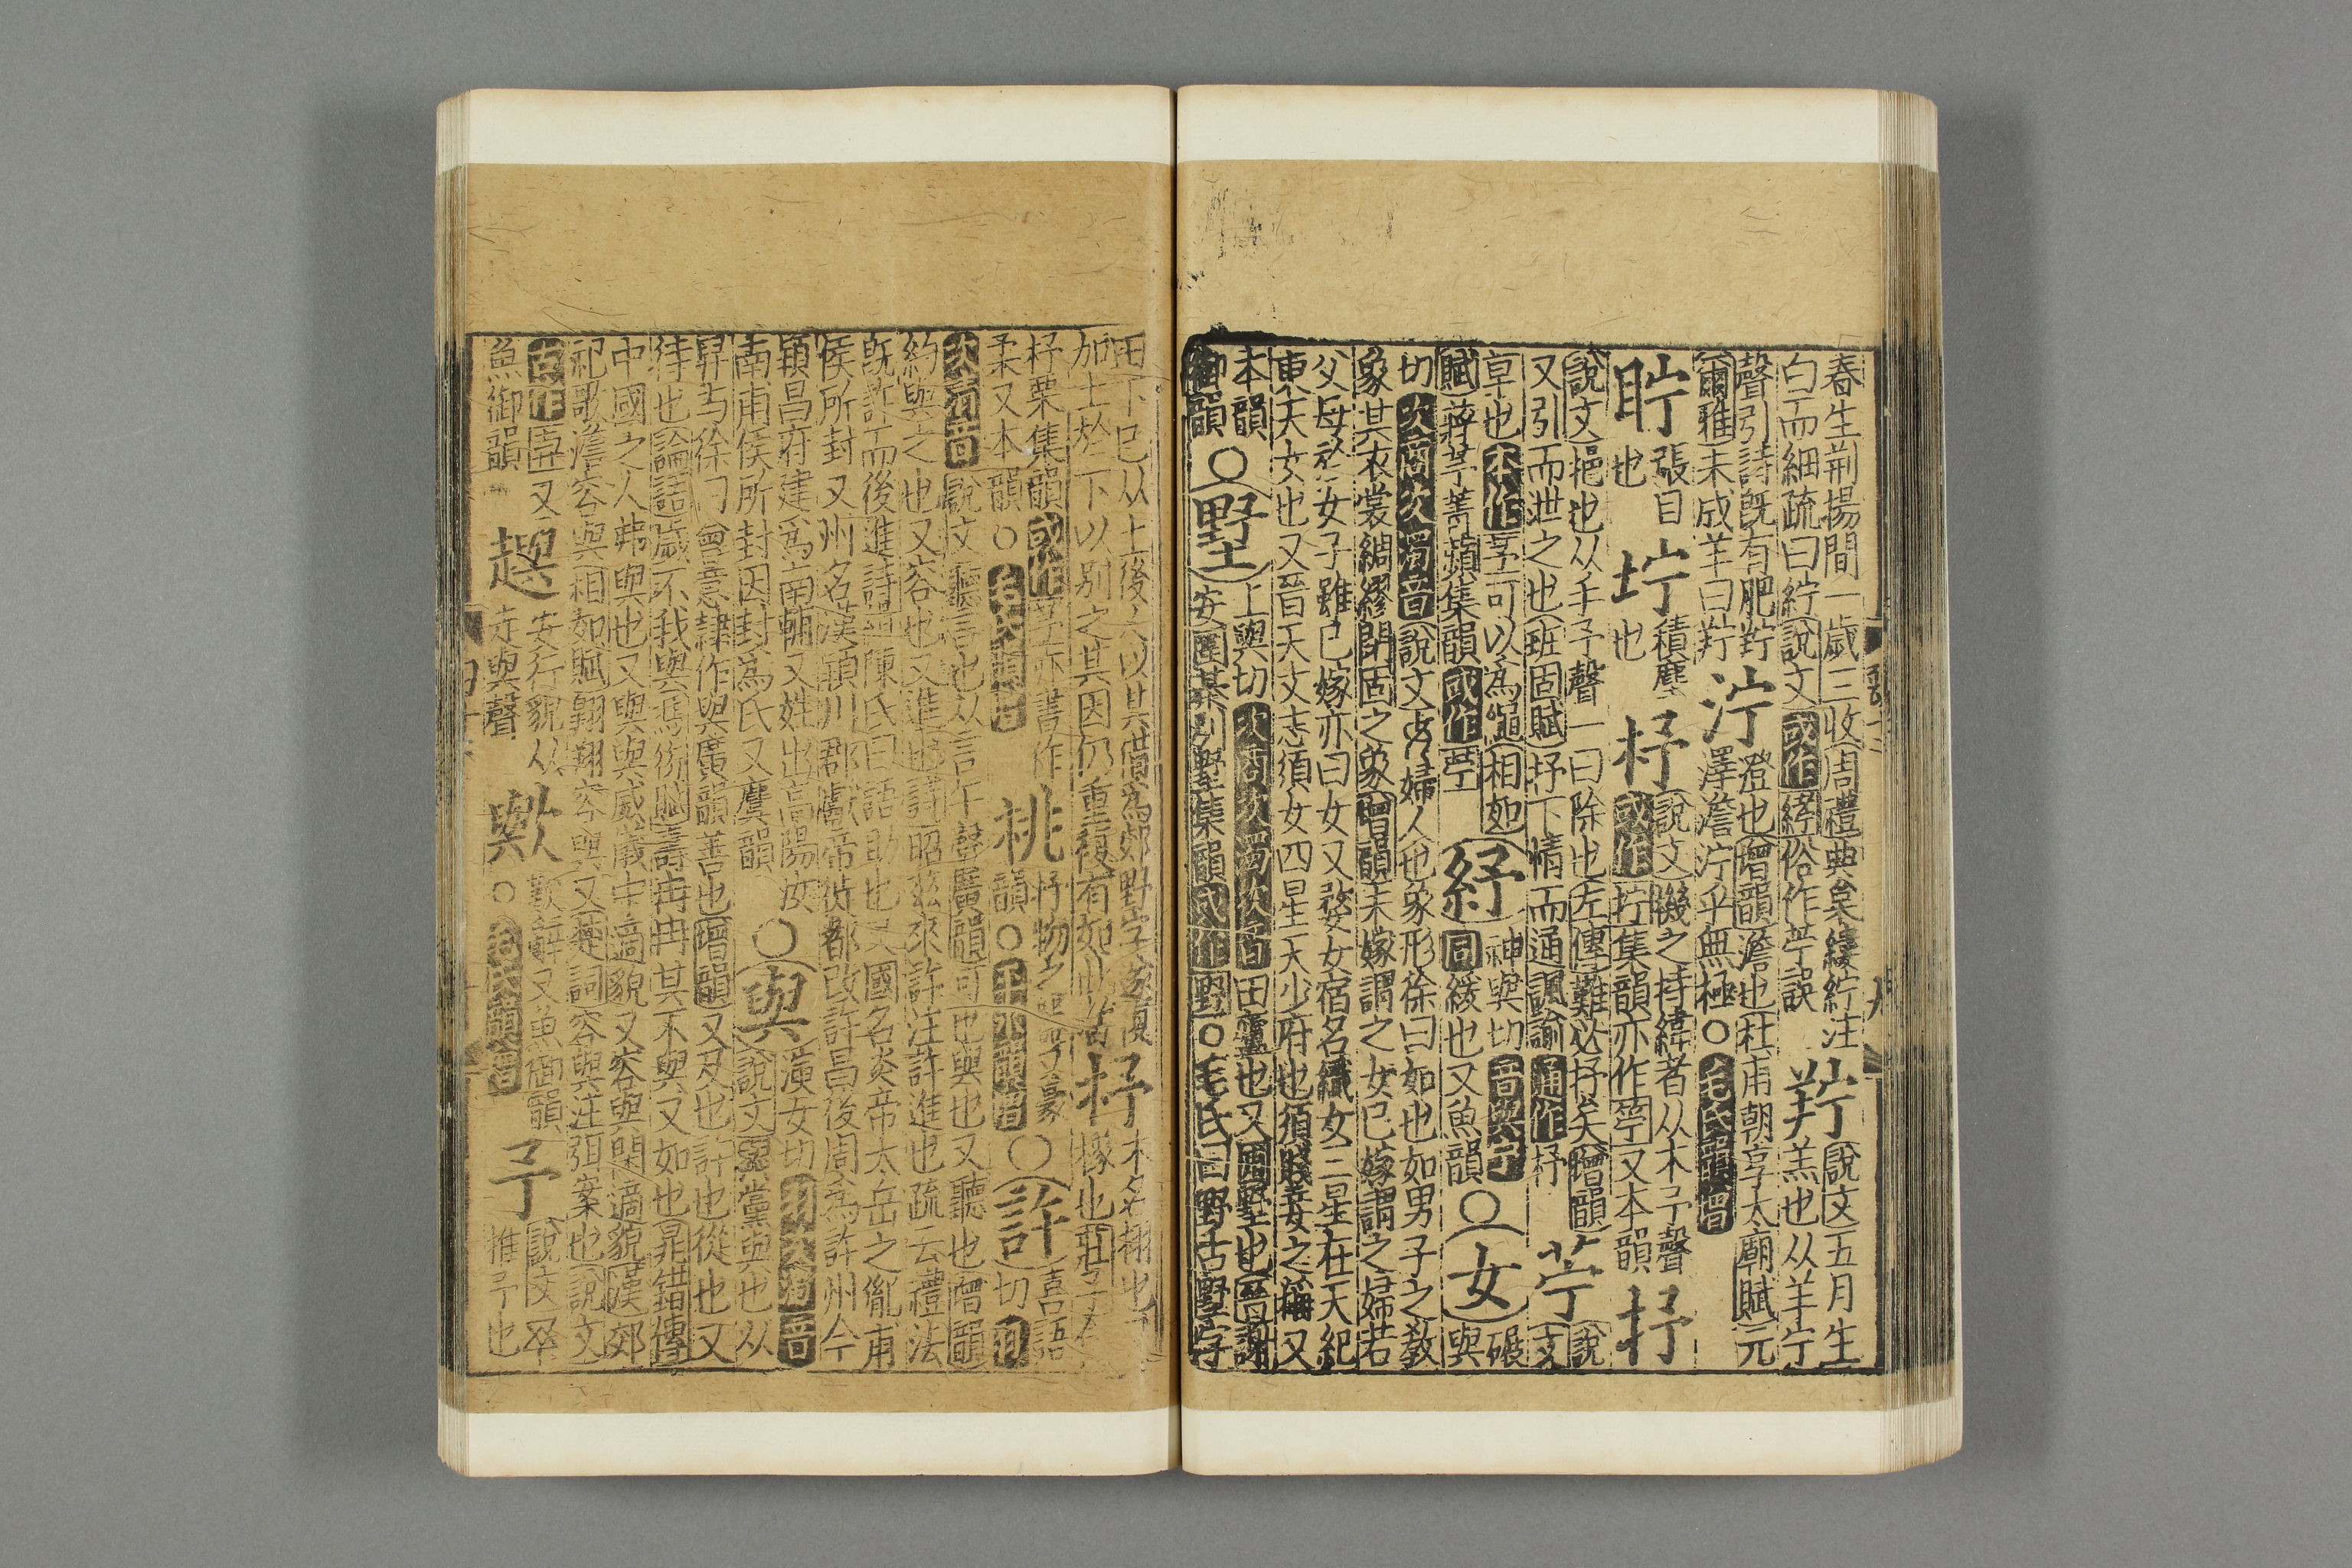 春生荆揚間一歲三收周禮典枲縷紵注
白而細疏曰紵說文或作䋡俗作苧誤
羜說文五月生
羔也从羊宁
聲引詩旣有肥羜
爾雅未成羊曰羜
泞澄也增韻澹也杜甫朝享太廟賦元
澤澹泞乎無極○毛氏韻增
眝張目
也
坾積塵
也
杼說文機之持緯者从木予聲
或作㧗集韻亦作竚又本韻
抒
說文挹也从手予聲一曰除也左傳難必抒矣增韻
又引而泄之也班固賦抒下情而通諷諭通作杼
苧說
文
草也本作芧可以爲繩相如
賦蔣芧菁薠集韻或作苧
紓神與切音與予
同緩也又魚韻
○女碾
與
切次商次濁音說文女婦人也象形徐曰如也如男子之敎
象其衣裳綢繆閉固之象增韻未嫁謂之女已嫁謂之婦若
父母於女子雖已嫁亦曰女又婺女宿名織女三星在天紀
東天女也又晉天文志須女四星天少府也須賤妾之稱又
本韻
御韻
○野上與切次商次濁次音田廬也又囿野也晉謝
安圍棊別墅集韻或作野○毛氏曰野古墅字
田下已从土後人以其借爲郊野字遂復
加土於下以別之其因仍重複有如此者
杼木名栩也
橡也莊子食
杼栗集韻或作芧亦書作
柔又本韻○毛氏韻增
桃抒物之器又豪
韻○平水韻增
○許喜語
切羽
次清音說文聽言也从言午聲廣韻可也與也又聽也增韻
約與之也又容也又進也詩昭玆來許注許進也疏云禮法
旣許而後進詩詁陳氏曰語助也又國名炎帝太岳之胤甫
侯所封又州名漢潁川郡獻帝徙都改許昌後周爲許州今
潁昌府建爲南輔又姓出高陽汝
南甫侯所封因封爲氏又麌韻
○與演女切羽次濁音
說文黨與也从
舁与徐曰會意隷作與廣韻善也增韻又及也許也從也又
待也論語歲不我與馮衍賦壽冉冉其不與又如也鼂錯傳
中國之人弗與也又與與威儀中適貌又容與閑適貌漢郊
祀歌澹容與相如賦翱翔容與又楚詞容與注弭案也說文
古作㒜又
魚御韻
趣安行貌从
走與聲
歟歎辭又魚御韻
○毛氏韻增
予說文
推予也